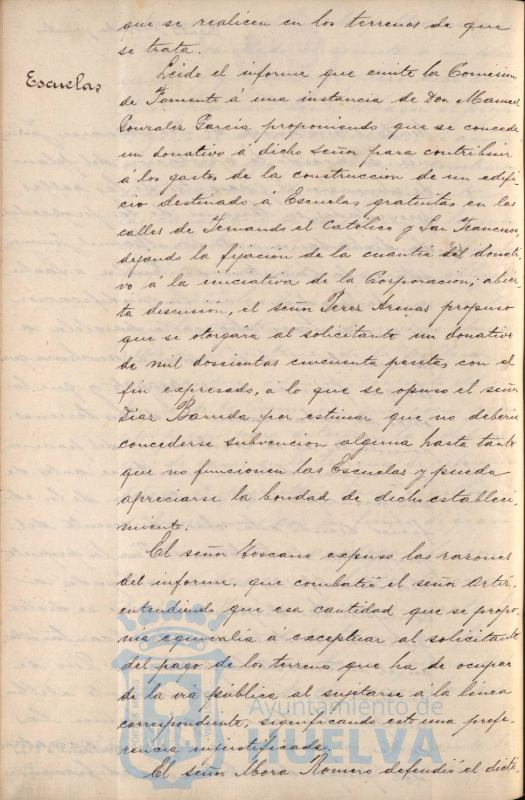 que se realicen en los terrenos de que
se trata.
Escuelas
Leido el informe que emite la Comision
de Fomento á una instancia de Don Manuel
Gonzalez Garcia proponiendo que se conceda
un donativo á dicho señor para contribuir
á los gastos de la construccion de un edifi-
cio destinado á Escuelas gratuitas en las
calles de Fernando el Católico y San Francisco,
dejando la fijacion de la cuantia del donati-
vo á la iniciativa de la Corporacion; abier-
ta discusion, el señor Perez Arenas propuso
que se otorgára al solicitante un donativo
de mil doscientas cincuenta pesetas, con el
fin expresado, á lo que se opuso el señor
Diaz Barreda por estimar que no deberia
concederse subvencion alguna hasta tanto
que no funcionen las Escuelas y pueda
apreciarse la bondad de dicho estableci-
miento.
El señor Toscano expuso las razones
del informe, que combatió el señor Ortiz
entendiendo que esa cantidad que se propo-
nia equivalia á exceptuar al solicitante
del pago de los terreno que ha de ocupar
de la via pública al sujetarse á la linea
correspondiente, significando esto una prefe-
rencia injustificada.
El señor Mora Romero defendió el dictá-
Ayuntamiento de
HUELVA